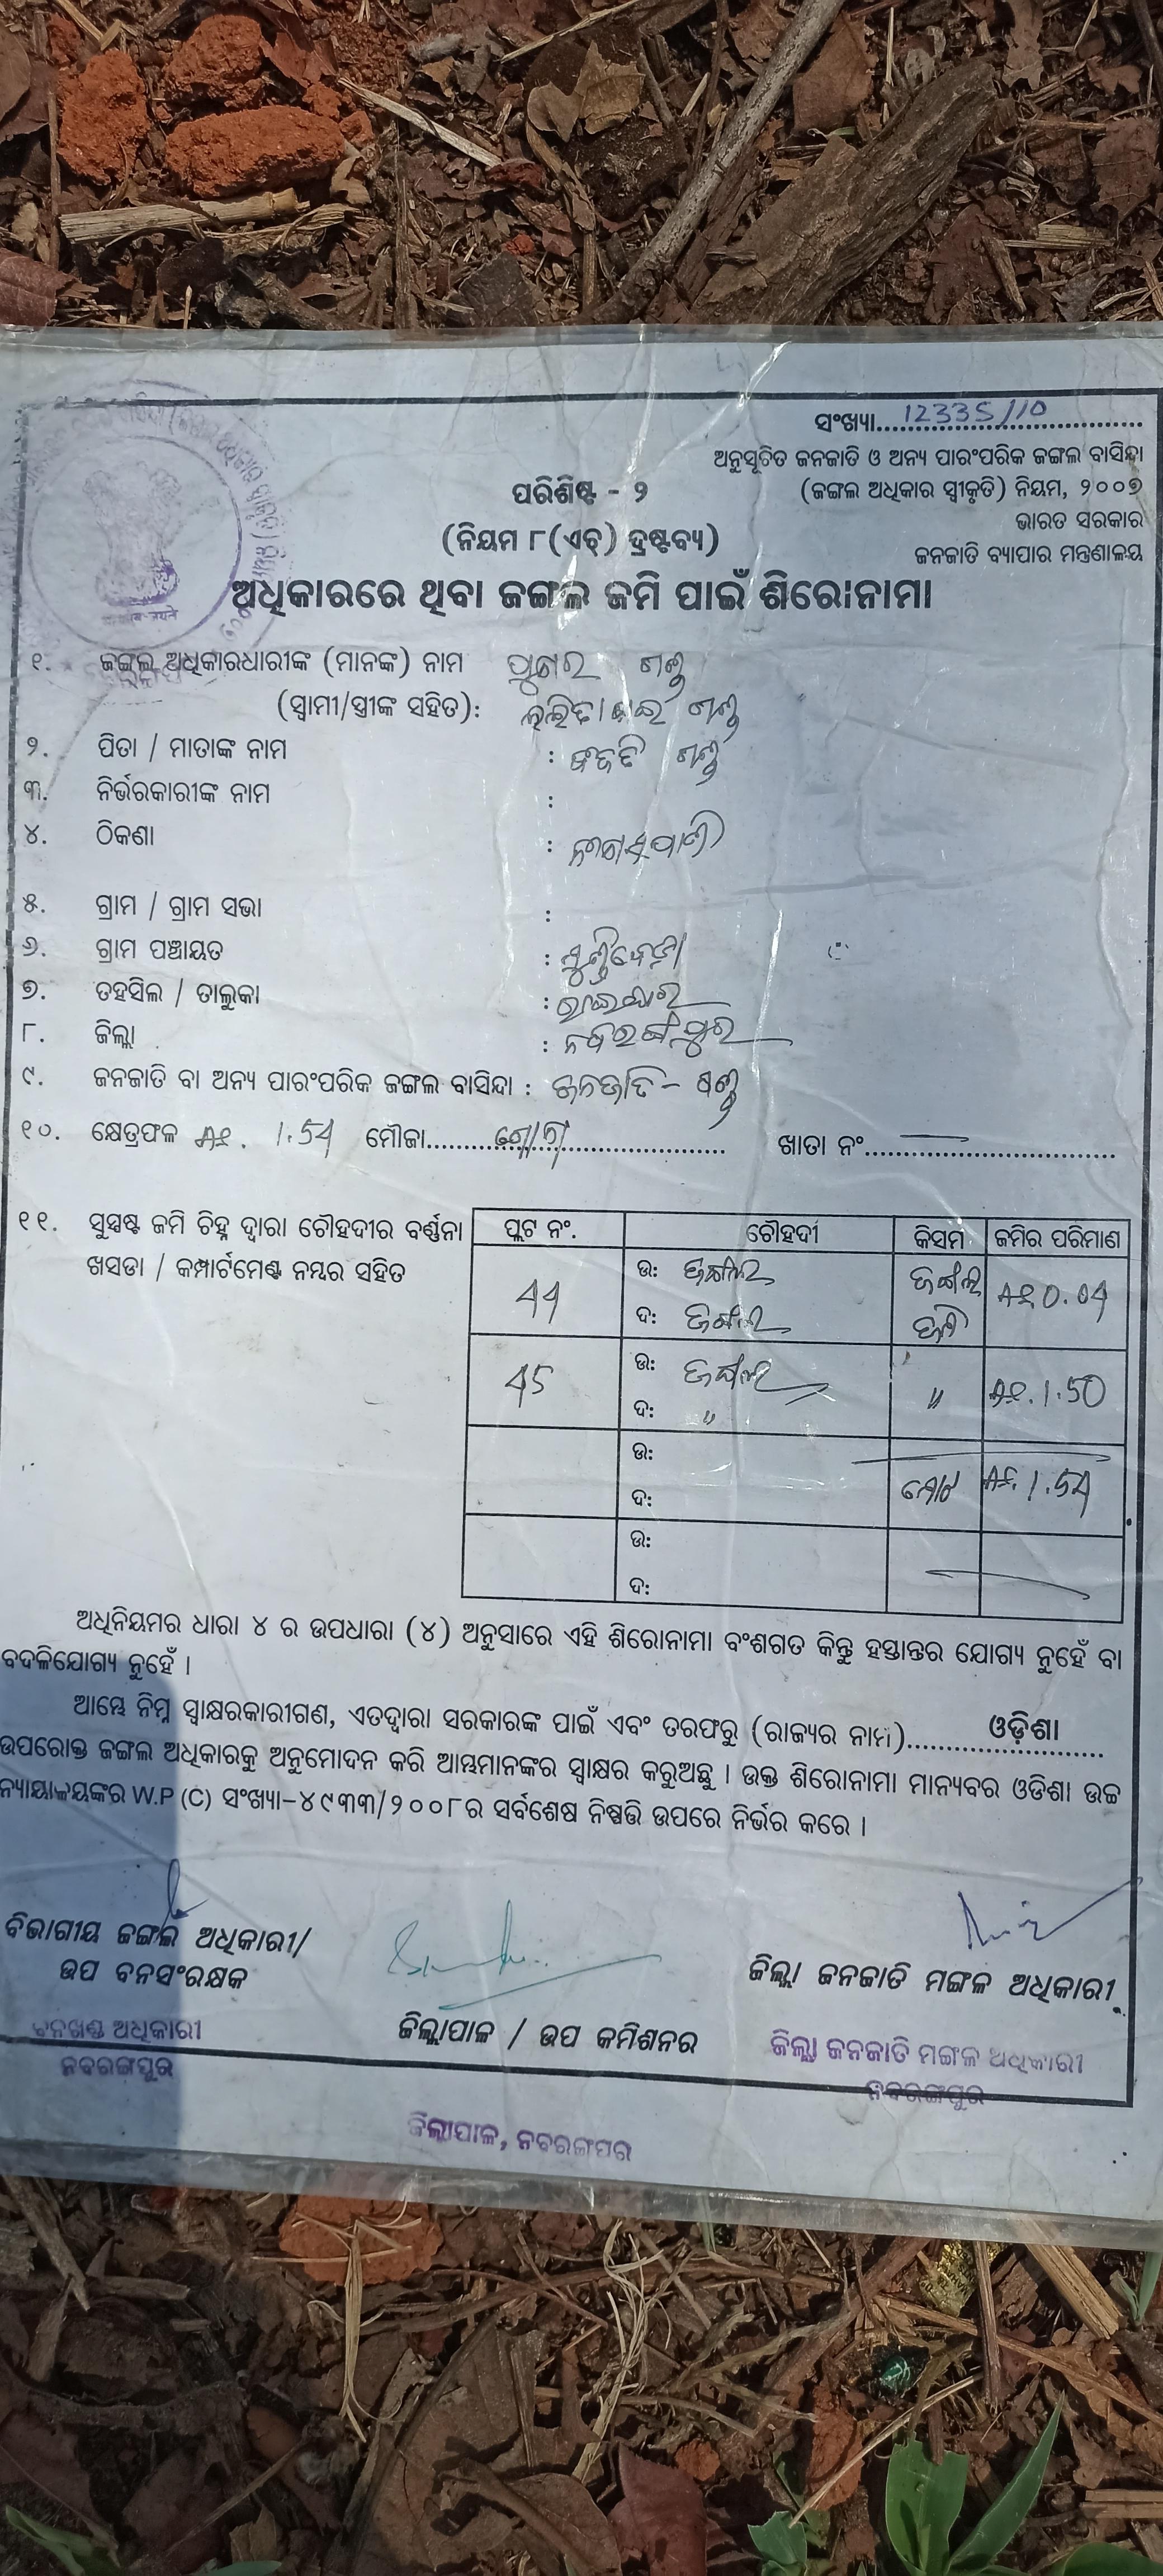 ସଂଖ୍ୟା..12335/10
ଅନୁସୂଚିତ ଜନଜାତି ଓ ଅନ୍ୟ ପାରଂପରିକ ଜଙ୍ଗଲ ବାସିନ୍ଦା
(ଜଙ୍ଗଲ ଅଧିକାର ସ୍ୱୀକୃତି) ନିୟମ, ୨୦୦୭
ଭାରତ ସରକାର
ଜନଜାତି ବ୍ୟାପାର ମନ୍ତ୍ରଣାଳୟ
ପରିଶିଷ୍ଟ - ୨
(ନିୟମ ୮(ଏଚ୍) ଦ୍ରଷ୍ଟବ୍ୟ)
ଅଧିକାରରେ ଥିବା ଜଙ୍ଗଲ ଜମି ପାଇଁ ଶିରୋନାମା
୧. ଜଙ୍ଗଲ ଅଧିକାରଧାରୀଙ୍କ (ମାନଙ୍କ) ନାମ
(ସ୍ୱାମୀ/ସ୍ତ୍ରୀଙ୍କ ସହିତ):
୨. ପିତା / ମାତାଙ୍କ ନାମ :
୩. ନିର୍ଭରକାରୀଙ୍କ ନାମ :
୪. ଠିକଣା :
୫. ଗ୍ରାମ / ଗ୍ରାମ ସଭା :
୬. ଗ୍ରାମ ପଞ୍ଚାୟତ :
୭. ତହସିଲ / ତାଲୁକା : ରାଇଘର
୮. ଜିଲ୍ଲା : ନବରଙ୍ଗପୁର
୯. ଜନଜାତି ବା ଅନ୍ୟ ପାରଂପରିକ ଜଙ୍ଗଲ ବାସିନ୍ଦା : ଜନଜାତି -
୧୦. କ୍ଷେତ୍ରଫଳ Ac. 1.54 ମୌଜା........ ଖାତା ନଂ........
୧୧. ସୁସ୍ପଷ୍ଟ ଜମି ଚିହ୍ନ ଦ୍ୱାରା ଚୌହଦୀର ବର୍ଣ୍ଣନା
ଖସଡା / କମ୍ପାର୍ଟମେଣ୍ଟ ନମ୍ବର ସହିତ
ପ୍ଲଟ ନଂ. ଚୌହଦୀ କିସମ ଜମିର ପରିମାଣ
44 ଉ: ଜଙ୍ଗଲ ଜଙ୍ଗଲ Ac 0.04
ଦ: ଜଙ୍ଗଲ ଜମି
45 ଉ: ଜଙ୍ଗଲ " Ac. 1.50
ଦ: "
ଉ: ମୋଟ Ac. 1.54
ଦ:
ଉ:
ଦ:
ଅଧିନିୟମର ଧାରା ୪ ର ଉପଧାରା (୪) ଅନୁସାରେ ଏହି ଶିରୋନାମା ବଂଶଗତ କିନ୍ତୁ ହସ୍ତାନ୍ତର ଯୋଗ୍ୟ ନୁହେଁ ବା
ବଦଳିଯୋଗ୍ୟ ନୁହେଁ ।
ଆମ୍ଭେ ନିମ୍ନ ସ୍ୱାକ୍ଷରକାରୀଗଣ, ଏତଦ୍ୱାରା ସରକାରଙ୍କ ପାଇଁ ଏବଂ ତରଫରୁ (ରାଜ୍ୟର ନାମ)........ଓଡ଼ିଶା
ଉପରୋକ୍ତ ଜଙ୍ଗଲ ଅଧିକାରକୁ ଅନୁମୋଦନ କରି ଆମ୍ଭମାନଙ୍କର ସ୍ୱାକ୍ଷର କରୁଅଛୁ । ଉକ୍ତ ଶିରୋନାମା ମାନ୍ୟବର ଓଡିଶା ଉଚ୍ଚ
ନ୍ୟାୟାଳୟଙ୍କର W.P (C) ସଂଖ୍ୟା-୪୯୩୩/୨୦୦୮ର ସର୍ବଶେଷ ନିଷ୍ପତ୍ତି ଉପରେ ନିର୍ଭର କରେ ।
ବିଭାଗୀୟ ଜଙ୍ଗଲ ଅଧିକାରୀ/
ଉପ ବନସଂରକ୍ଷକ
ବନଖଣ୍ଡ ଅଧିକାରୀ
ନବରଙ୍ଗପୁର
ଜିଲ୍ଲାପାଳ / ଉପ କମିଶନର
ଜିଲ୍ଲାପାଳ, ନବରଙ୍ଗପୁର
ଜିଲ୍ଲା ଜନଜାତି ମଙ୍ଗଳ ଅଧିକାରୀ
ଜିଲ୍ଲା ଜନଜାତି ମଙ୍ଗଳ ଅଧିକାରୀ
ନବରଙ୍ଗପୁର